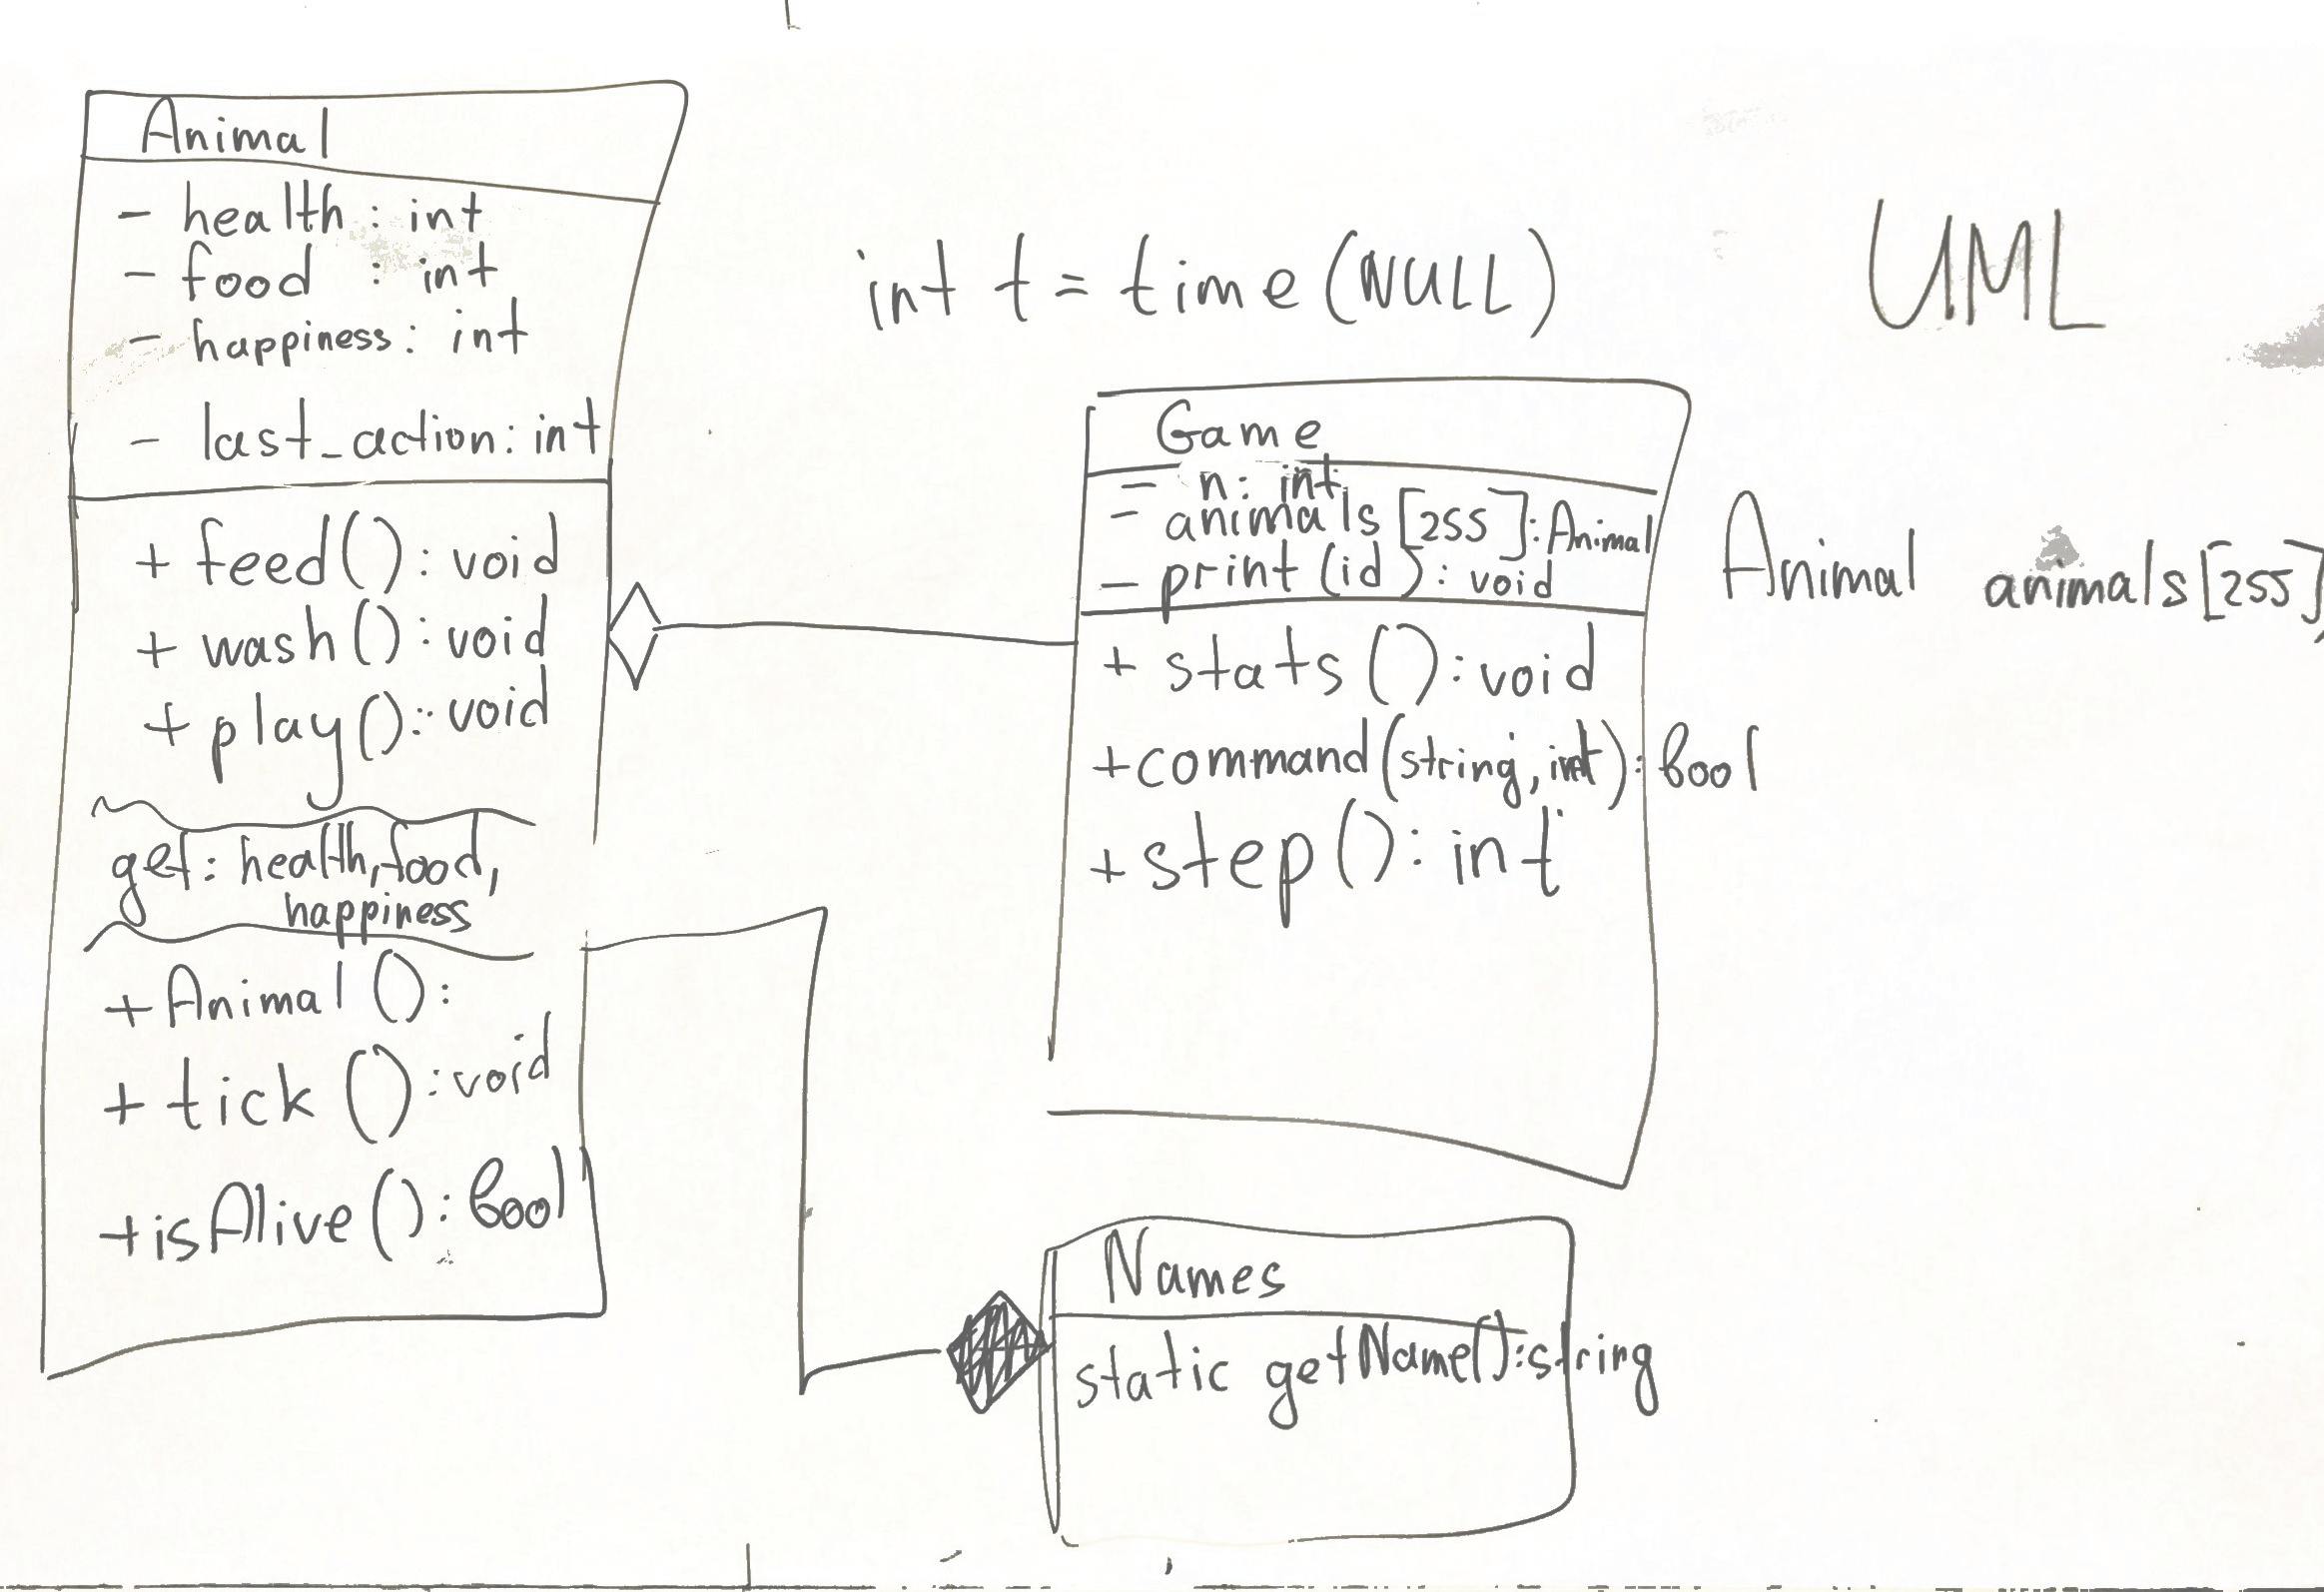 Animal
- health : int
- food : int
- happiness : int
- last_action : int
+ feed() : void
+ wash() : void
+ play() : void
get: health, food,
happiness
+ Animal () :
+ tick () : void
+ isAlive () : bool
int t = time (NULL)
UML
Game
- n : int
- animals [255] : Animal
- print (id) : void
+ stats () : void
+ command (string, int) : bool
+ step () : int
Animal animals[255];
Names
static getName() : string